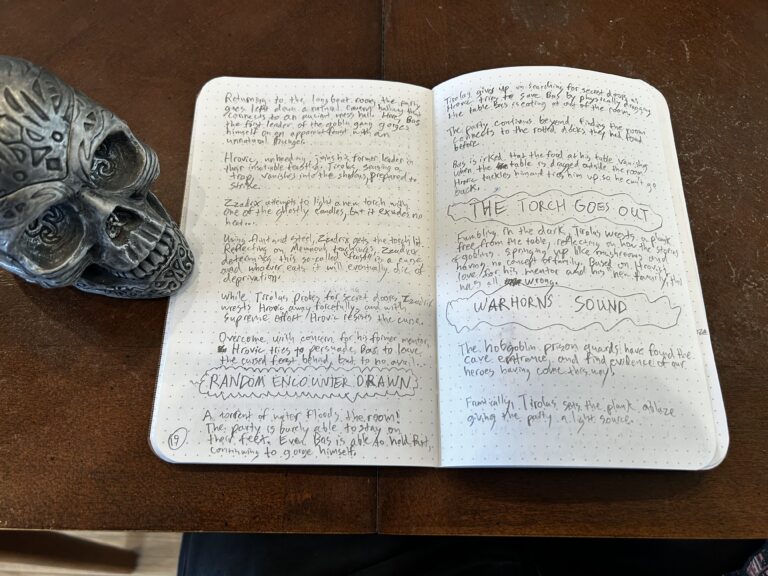 Returning to the longboat room, the party
goes left down a natural cavern hallway that
connects to an ancient mess hall. Here, Bas
the first leader of the goblin gang gorges
himself on an apparent feast with an
unnatural hunger.
Hrovic, unheeding, joins his former leader in
their insatiable feasting. Tirolas, sensing a
trap, vanishes into the shadows, prepared to
strike.
Zzadrix attempts to light a new torch with
one of the ghostly candles, but it exudes no
heat...
Using flint and steel, Zzadrix gets the torch lit.
Reflecting on teachings, Zzadrix
determines this so-called "feast" is a curse,
and whatever eats it will eventually die of
deprivation.
While Tirolas probes for secret doors, Zzadrix
wrests Hrovic away forcefully, and with
supreme effort, Hrovic resists the curse.
Overcome with concern for his former mentor,
Hrovic tries to persuade Bas to leave
the cursed feast behind, but to no avail.
RANDOM ENCOUNTER DRAWN
A torrent of water floods the room!
The party is barely able to stay on
their feet. Even Bas is able to hold fast,
continuing to gorge himself.
19
Tirolas gives up on searching for secret doors, as
Hrovic tries to save Bas by physically dragging
the table Bas is eating at out of the room.
The party continues beyond, finding the room
connects to the rotted docks they had found
before.
Bas is irked that the food at his table vanishes
when the table is dragged outside the room.
Hrovic tackles him and ties him up so he can't go
back.
THE TORCH GOES OUT
Fumbling in the dark, Tirolas wrests a plank
free from the table, reflecting on how the stories
of goblins springing up like mushrooms and
having no concept of family. Based on Hrovic's
love for his mentor and his new family, that
was all wrong.
WARHORNS SOUND
The hobgoblin prison guards have found the
cave entrance, and find evidence of our
heroes having come this way!
Frantically, Tirolas sets the plank ablaze
giving the party a light source.